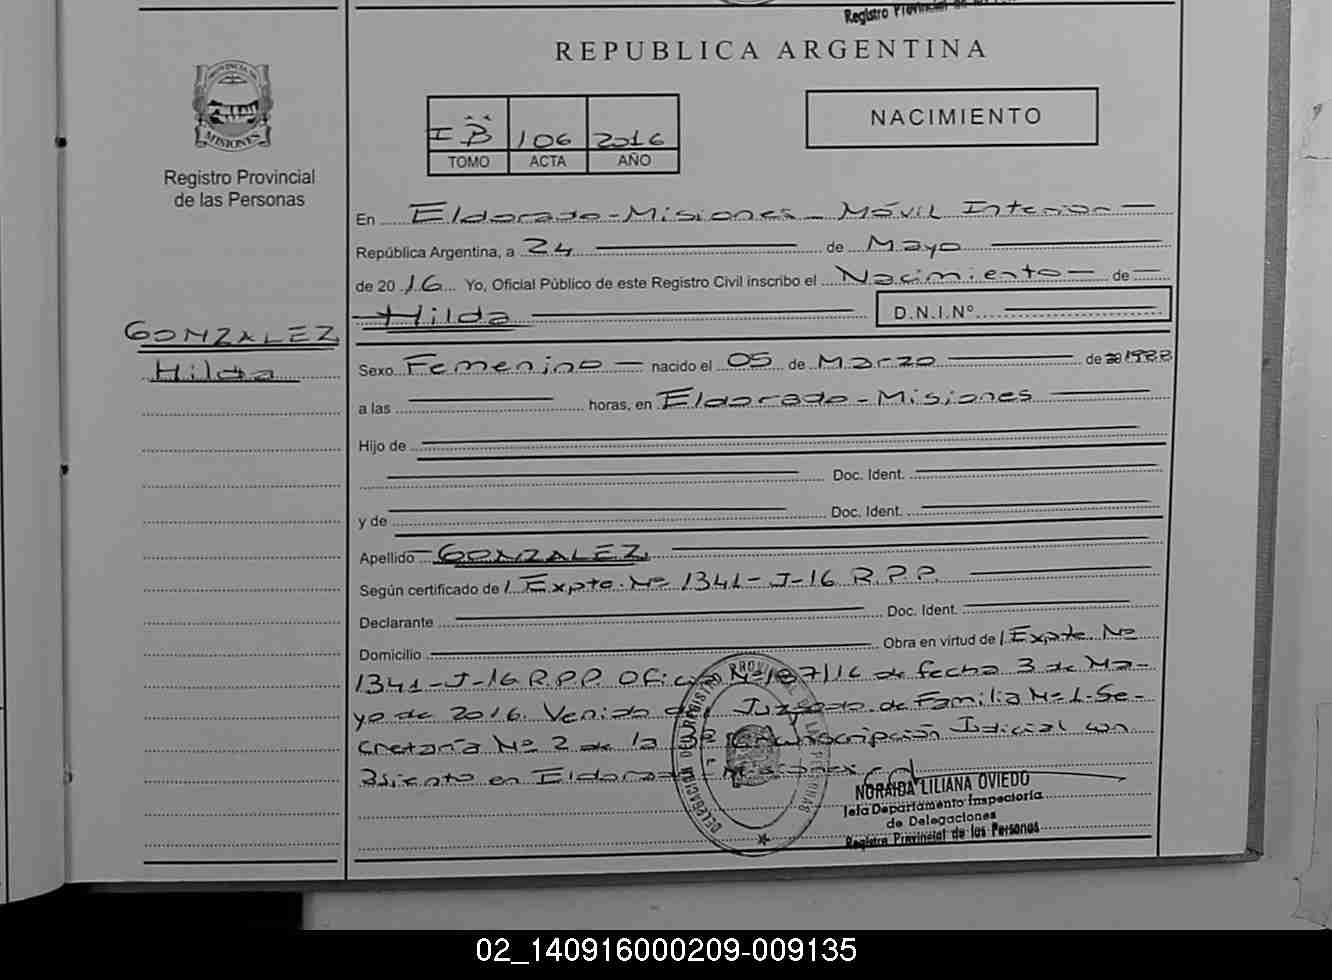 Registro Provincial de las
REPUBLICA ARGENTINA
PROVINCIA DE
MISIONES
Registro Provincial
de las Personas
I B 106 2016
TOMO ACTA AÑO
NACIMIENTO
En Eldorado-Misiones - Móvil Interior -
República Argentina, a 24 de Mayo
de 2016 Yo, Oficial Público de este Registro Civil inscribo el Nacimiento - de -
Hilda D.N.I.Nº
GONZALEZ
Hilda
Sexo Femenino - nacido el 05 de Marzo de 20 1988
a las horas, en Eldorado-Misiones
Hijo de
Doc. Ident.
y de Doc. Ident.
Apellido GONZALEZ
Según certificado de / Expte. Nº 1341-J-16 R.P.P.
Declarante Doc. Ident.
Domicilio Obra en virtud de / Expte Nº
1341-J-16 R.P.P. Oficio Nº 187/16 de fecha 3 de Ma-
yo de 2016. Venido del Juzgado de Familia Nº 1-Se-
cretaría Nº 2 de la 3º Circunscripción Judicial con
asiento en Eldorado-Misiones
DELEGACION DEL REGISTRO PROVINCIAL DE LAS PERSONAS
NORAIDA LILIANA OVIEDO
Jefa Departamento Inspectoría
de Delegaciones
Registro Provincial de las Personas
02_140916000209-009135